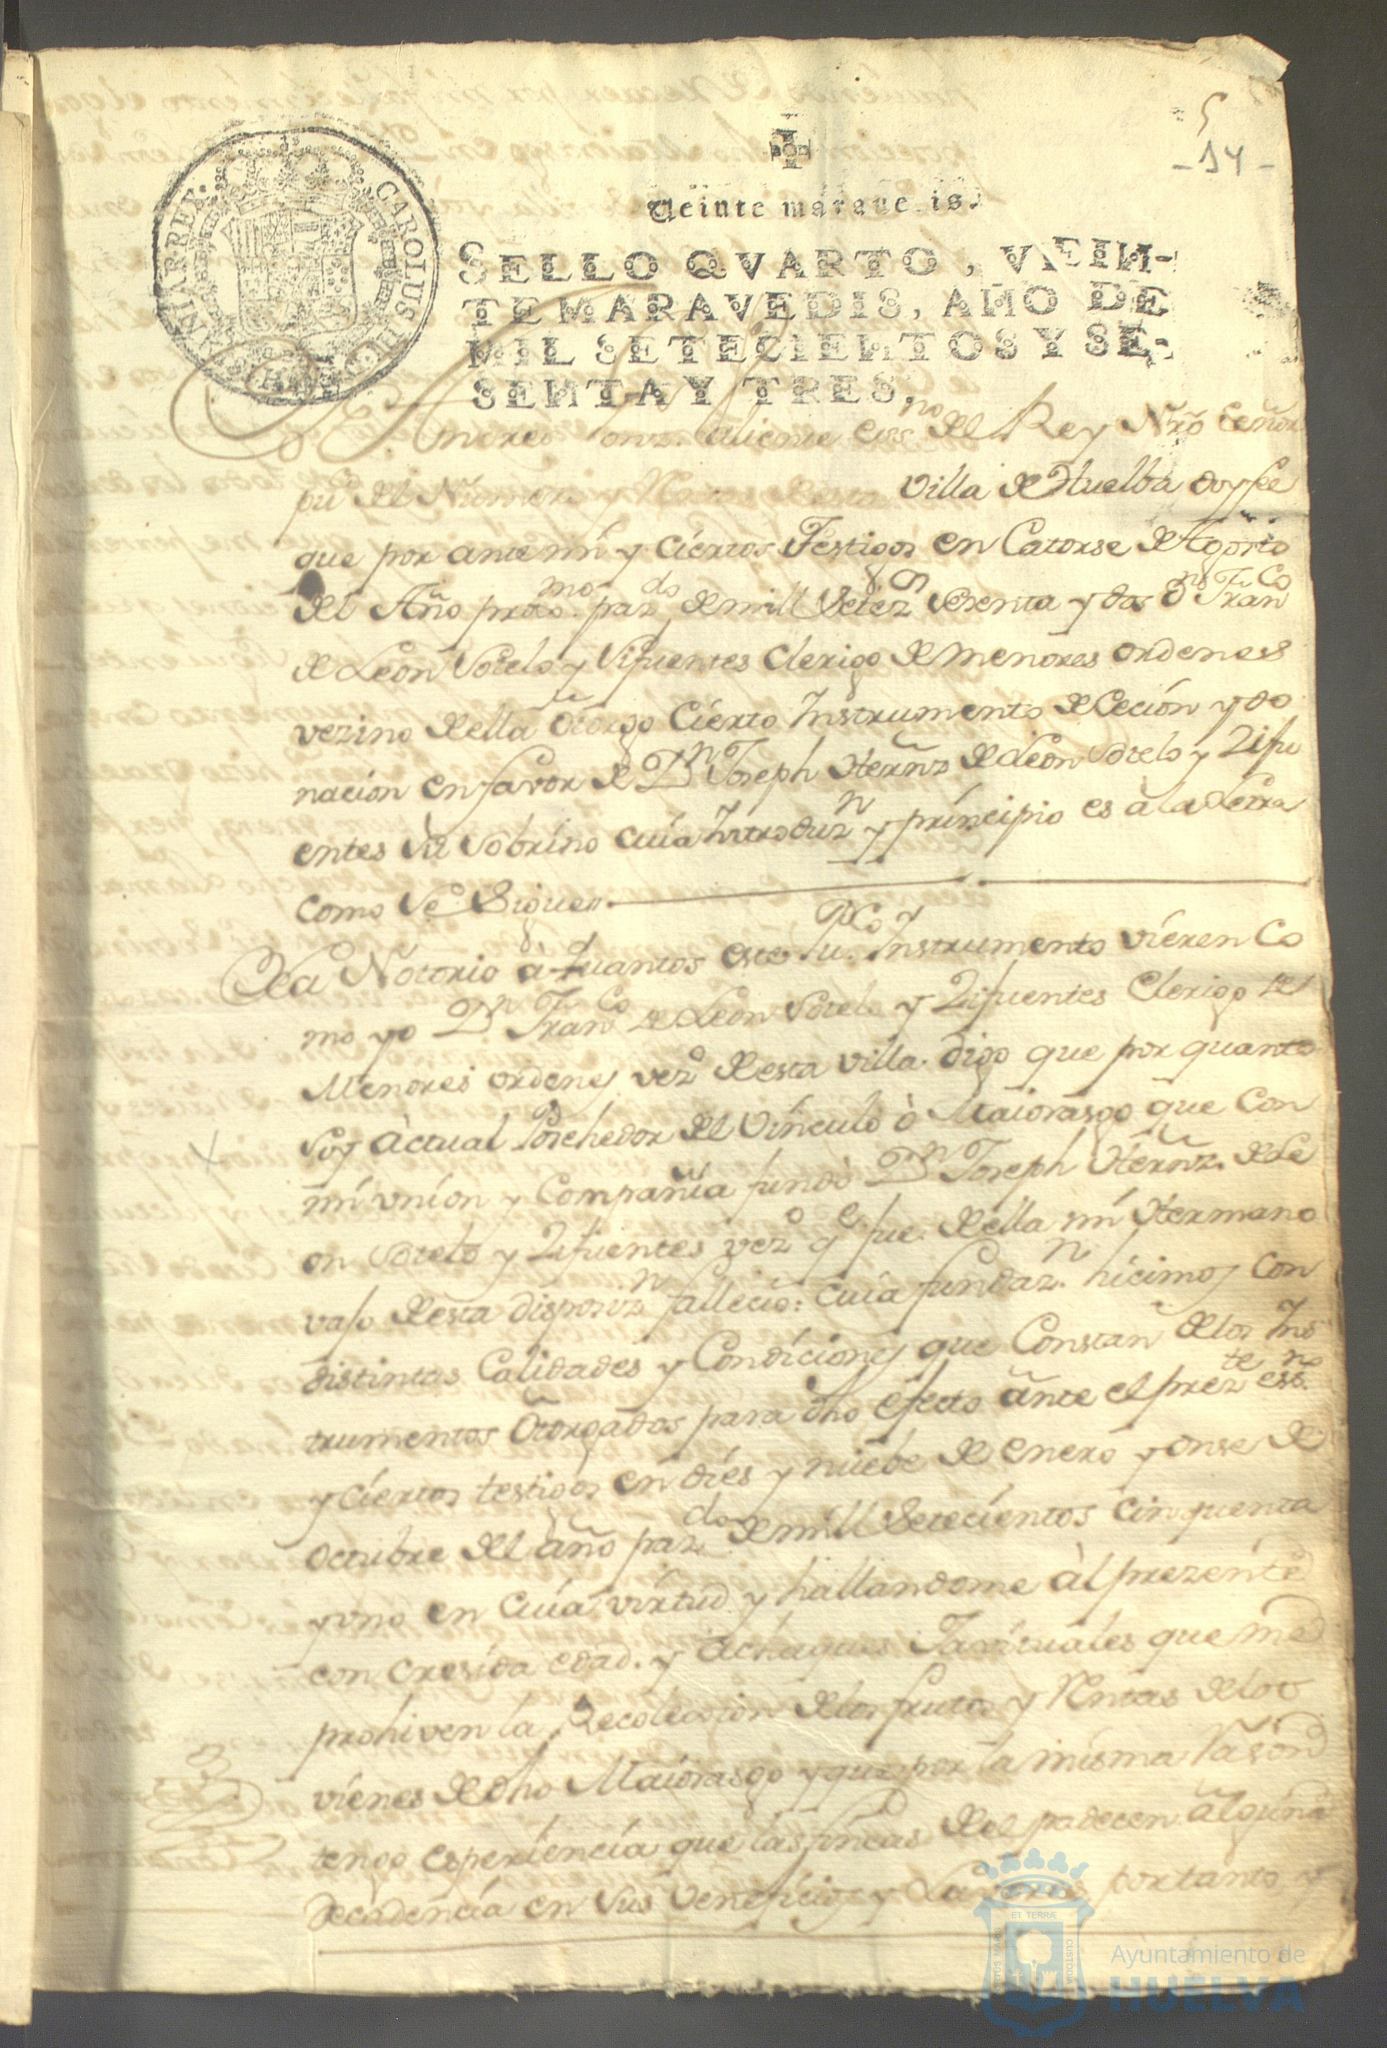 5
- 14 -
Veinte maraue is.
SELLO QVARTO, VEIN-
TE MARAVEDIS, AÑO DE
MIL SETECIENTOS Y SE-
SENTA Y TRES.
CAROLUS III HISPANIAR REX
Valiente essno del Rey Nro Señor
ppu del Numero y Villa de Huelba doy fee
que por ante mi y Ciertos Testigos en Catorse de Agosto
del Año proximo pazdo de mill Setezs Sesenta y dos Dn Franco
de Leon Sotelo y Sifuentes Clerigo de menores ordenes
vezino de ella Otorgo Cierto Instrumento de Ceción y do
nacion en favor de Dn Joseph Hernz de Leon Sotelo y Zifu
entes su Sobrino cuia Introduzn y principio es à la Letra
como Se Sigue
Sea Notorio à quantos este Puco Instrumento vieren Co
mo yo Dn Franco de Leon Sotelo y Zifuentes Clerigo de
Menores ordenes vezo de esta villa. digo que por quanto
soy àctual Posehedor del Vinculo ò Maiorasgo que con
mi vnion y Compañia fundò Dn Joseph Hernz de Le
on Sotelo y Zifuentes vezo qe fue de ella mi Hermano
vajo de esta disposizn falleció: cuia fundazn hicimos con
distintas Calidades y Condiciones que Constan de los Ins
trumentos Otorgados para dho efecto ante el prezte essno
y Ciertos testigos en dies y nuebe de enero y onse de
Octubre del año pazdo de mill Setecientos cinquenta
y vno en cuia virtud y hallandome àl prezente
con Cresida edad. y achaques que me
prohiven la Recoleccion de los frutos y Rentas de los
vienes de dho Maiorasgo y que por la misma Rason
tengo experiencia que las fincas de el padecen alguna
Decadencia en Sus Veneficios y Lavores portanto
ET TERRÆ
CUSTODIA
Ayuntamiento de
HUELVA